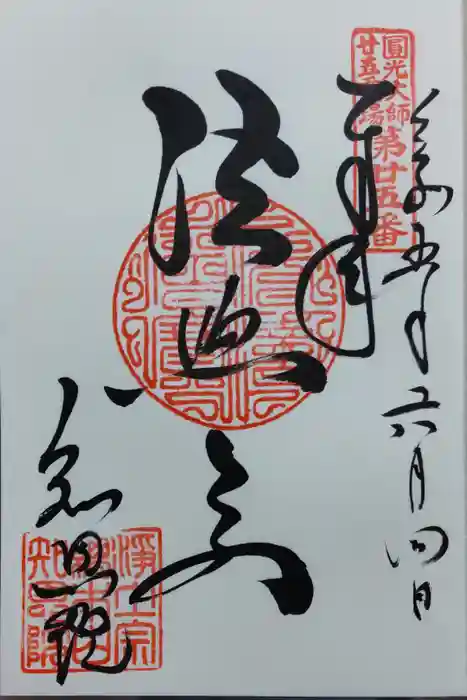 令和五年六月四日
圓光大師
廿五霊場
第廿五番
奉拝
法然上人
知恩院
淨土宗
總本山
知恩院